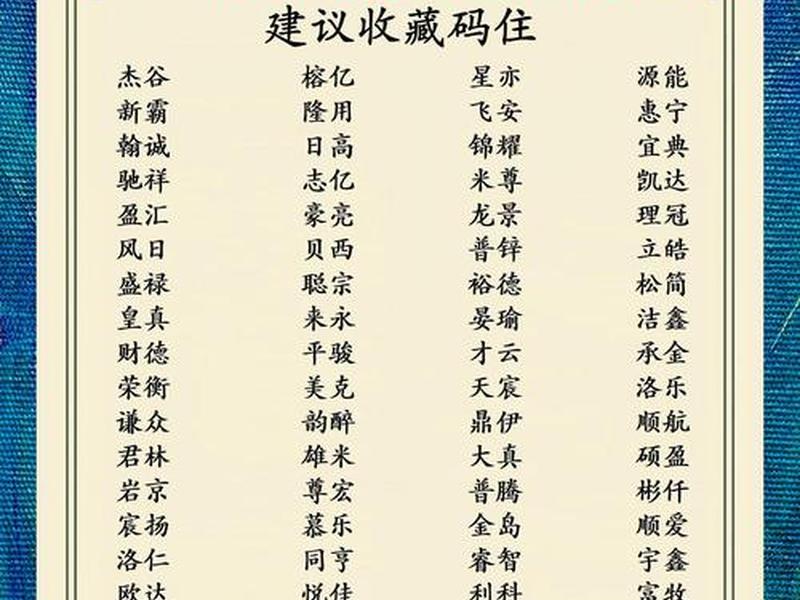 建议收藏码住
杰谷 榕亿 星亦 源能
新霸 隆用 飞安 惠宁
翰诚 日高 锦耀 宜典
驰祥 志亿 米尊 凯达
盈汇 豪亮 龙景 理冠
风日 贝西 普锌 立皓
盛禄 聪宗 裕德 松简
皇真 来永 晏瑜 洁鑫
财德 平骏 才云 承金
荣衡 美克 天宸 洛乐
谦众 韵醉 鼎伊 顺航
君林 雄米 大真 硕盈
岩京 尊宏 普腾 彬仟
宸扬 慕乐 金岛 顺爱
洛仁 同亨 睿智 宇鑫
欧达 悦佳 利科 富牧